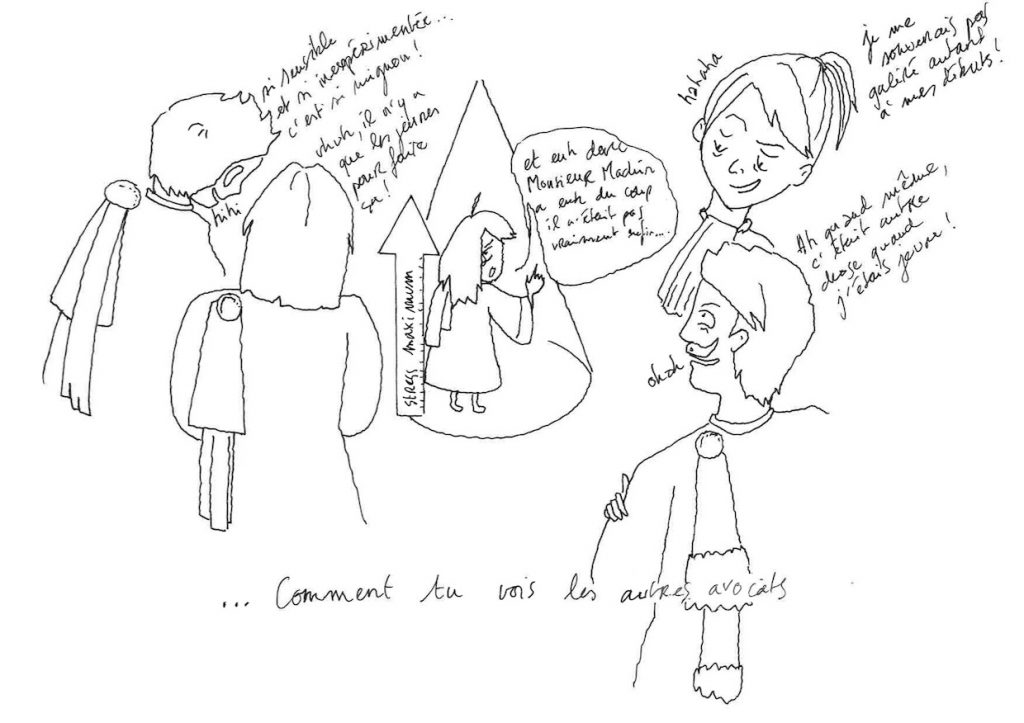 si sensible
et si inexpérimentée...
c'est si mignon!
uhuh, il n'y a
que les jeunes
pour faire
ça!
hihi
stress maximum
et euh donc
Monsieur Machin
a euh du coup
il n'était pas
vraiment
hahaha
je me
souvenais pas
galéré autant
à mes débuts!
Ah quand même,
c'était autre
chose quand
j'étais jeune!
ohoh
... Comment tu vois les autres avocats